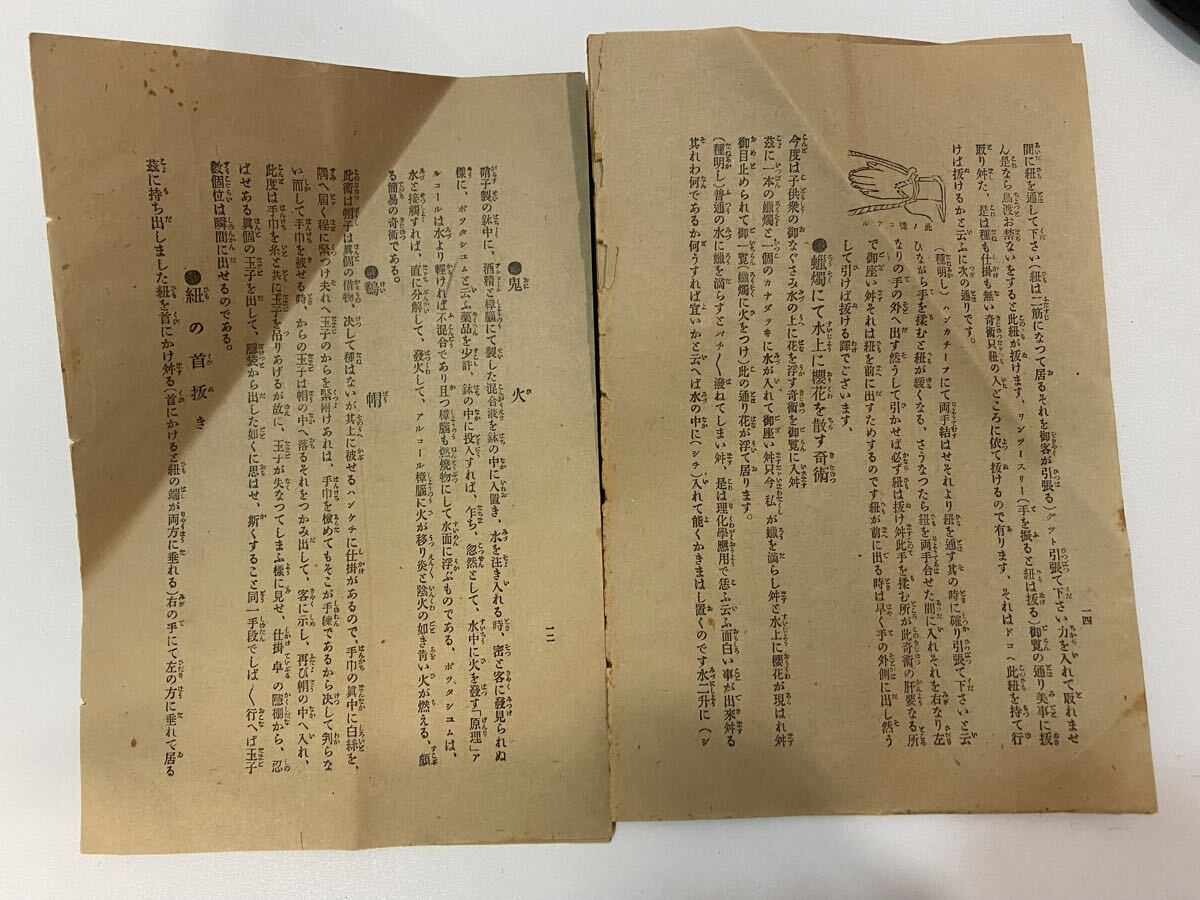 一四
間に紐を通して下さい(紐は二筋になつて居るそれを御客が引張る)グット引張て下さい力を入れて取れませ
ん是なら鳥渡お禁ないをすると此紐が拔けます、ワンツースリー(手を振ると紐は拔る)御覽の通り美事に拔
取り舛た、是は種も仕掛も無い奇術只紐の入どころに依て拔けるので有ります、それはドコへ此紐を持て行
けば拔けるかと云ふに次の通りです。
此ノ樣ニナル
(種明し)ハンカチーフにて両手結はせそれより紐を通す其の時に確り引張て下さいと云
ひながら手を揉むと紐が緩くなる、さうなつたら紐を両手合せた間に入れそれを右なり左
なりの手の外へ出す然うして引かせば必ず紐は拔け舛此手を揉む所が此奇術の肝要なる所
で御座い舛それは紐を前に出すためするのです紐が前に出る時は早く手の外側に出し然う
して引けば拔ける譯でございます、
●蠟燭にて水上に櫻花を散す奇術
今度は子供衆の御なぐさみ水の上に花を浮す奇術を御覽に入舛
茲に一本の蠟燭と一個のカナダラヰに水が入れて御座い舛只今私が蠟を滴らし舛と水上に櫻花が現はれ舛
御目止められて御一覽(蠟燭に火をつけ)此の通り花が浮て居ります。
(種明し)普通の水に蠟を滴らすとパチ〱潑ねてしまい舛、是は理化學應用で恁ふ云ふ面白い事が出來舛る
其れわ何であるか何うすれば宜いかと云へば水の中に(シチ)入れて能くかきまはし置くのです水二升に(シ
一二
●鬼火
硝子製の鉢中に、酒精と樟腦にて製した混合液を鉢の中に入置き、水を注き入れる時、密と客に發見られぬ
樣に、ポッタシユムと云ふ藥品を少許、鉢の中に投入すれば、乍ち、忽然として、水中に火を發す「原理」ア
ルコールは水より輕ければ不混合であり且つ樟腦も燃燒物にして水面に浮ぶものである、ポッタシユムは、
水と接觸すれば、直に分解して、發火して、アルコール樟腦に火が移り炎と陰火の如き靑い火が燃える、頗
る簡易の奇術である。
●鷄帽
此術は帽子は眞個の借物、決して種はないが其上に被せるハンケチに仕掛があるので、手巾の眞中に白絲を、
隅へ届く程に緊け夫れへ玉子のからを緊附けあれは、手巾を檢めてもそこが手練であるから決して判らな
い而して手巾を被せる時、からの玉子は帽の中へ落るそれをつかみ出して、客に示し、再び帽の中へ入れ、
此度は手巾を糸と共に玉子を吊りあげるが故に、玉子が失なつてしまふ樣に見せ、仕掛卓の隱棚から、忍
ばせある眞個の玉子を出して、隱袋から出した如くに思はせ、斯くすること同一手段でしば〱行へば玉子
數個位は瞬間に出せるのである。
●紐の首拔き
茲に持ち出しました紐を首にかけ舛る(首にかけると紐の端が両方に垂れる)右の手にて左の方に垂れて居る